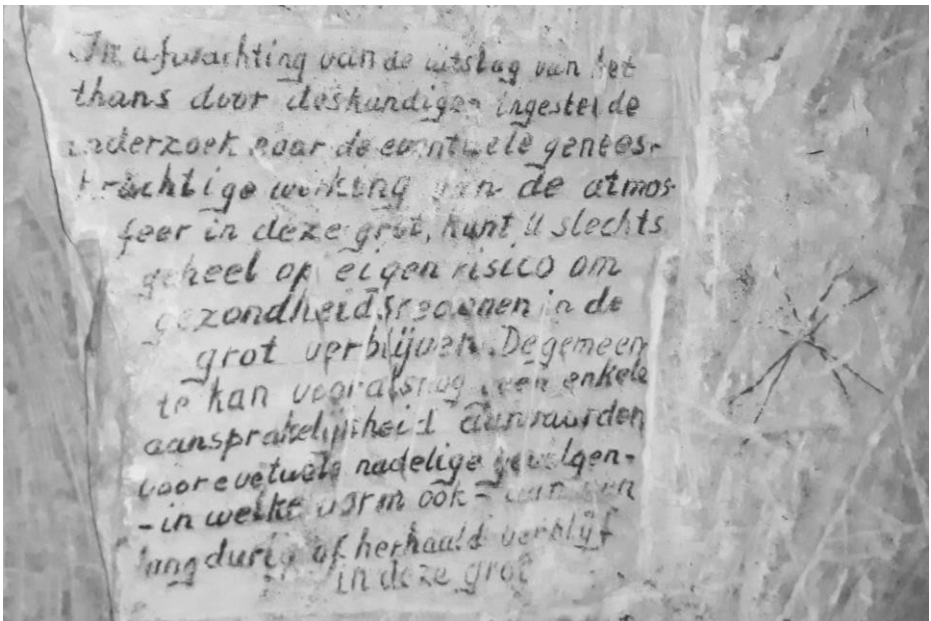 In afwachting van de uitslag van het
thans door deskundigen ingestelde
onderzoek naar de eventuele genees-
krachtige werking van de atmos-
feer in deze grot, kunt U slechts
geheel op eigen risico om
gezondheidsredenen in de
grot verblijven. De gemeen
te kan vooralsnog geen enkele
aansprakelijkheid aanvaarden
voor evetuele nadelige gevolgen-
- in welke vorm ook - van een
langdurig of herhaald verblijf
in deze grot